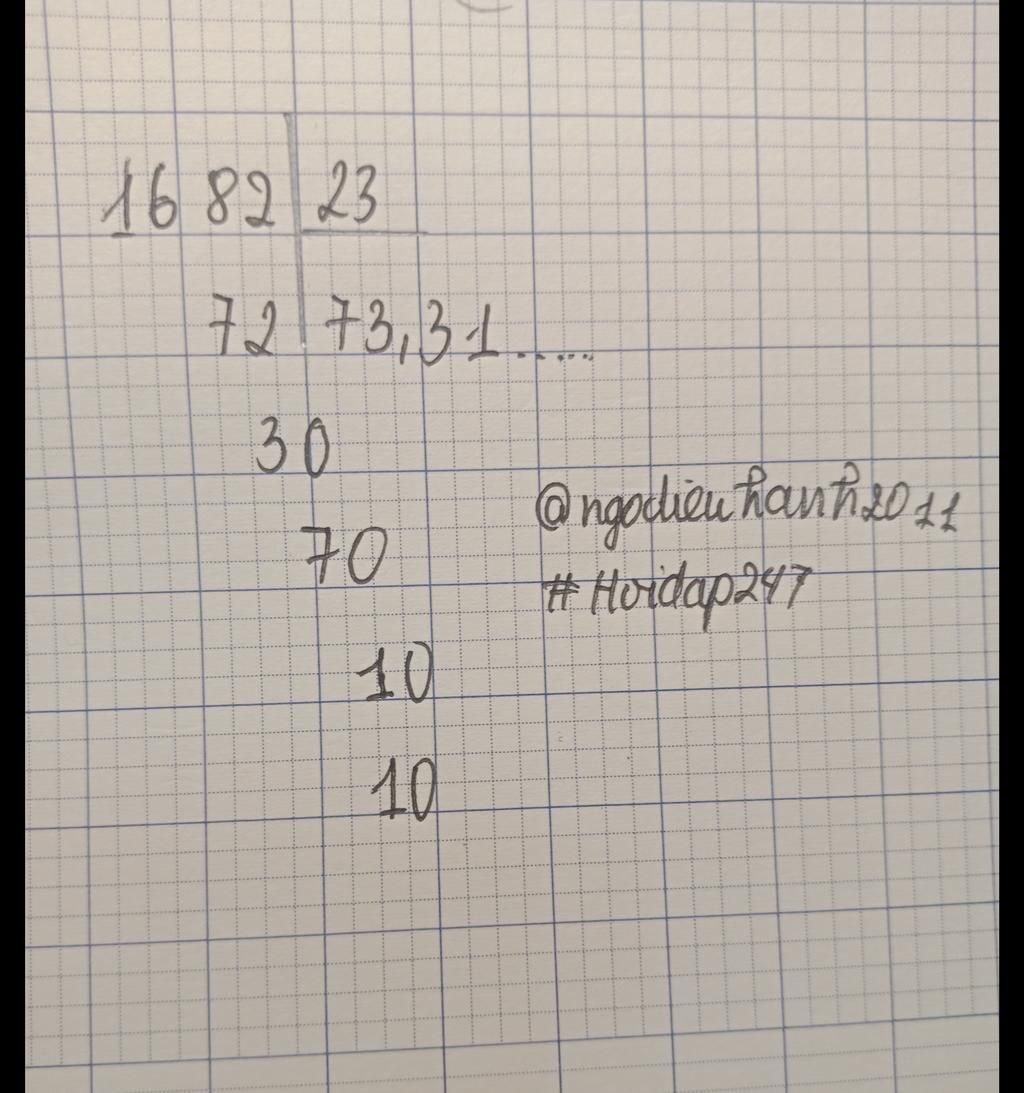 1682 23
72 73,31......
30
@ngodieuhanh2011
70
#Hoidap247
10
10